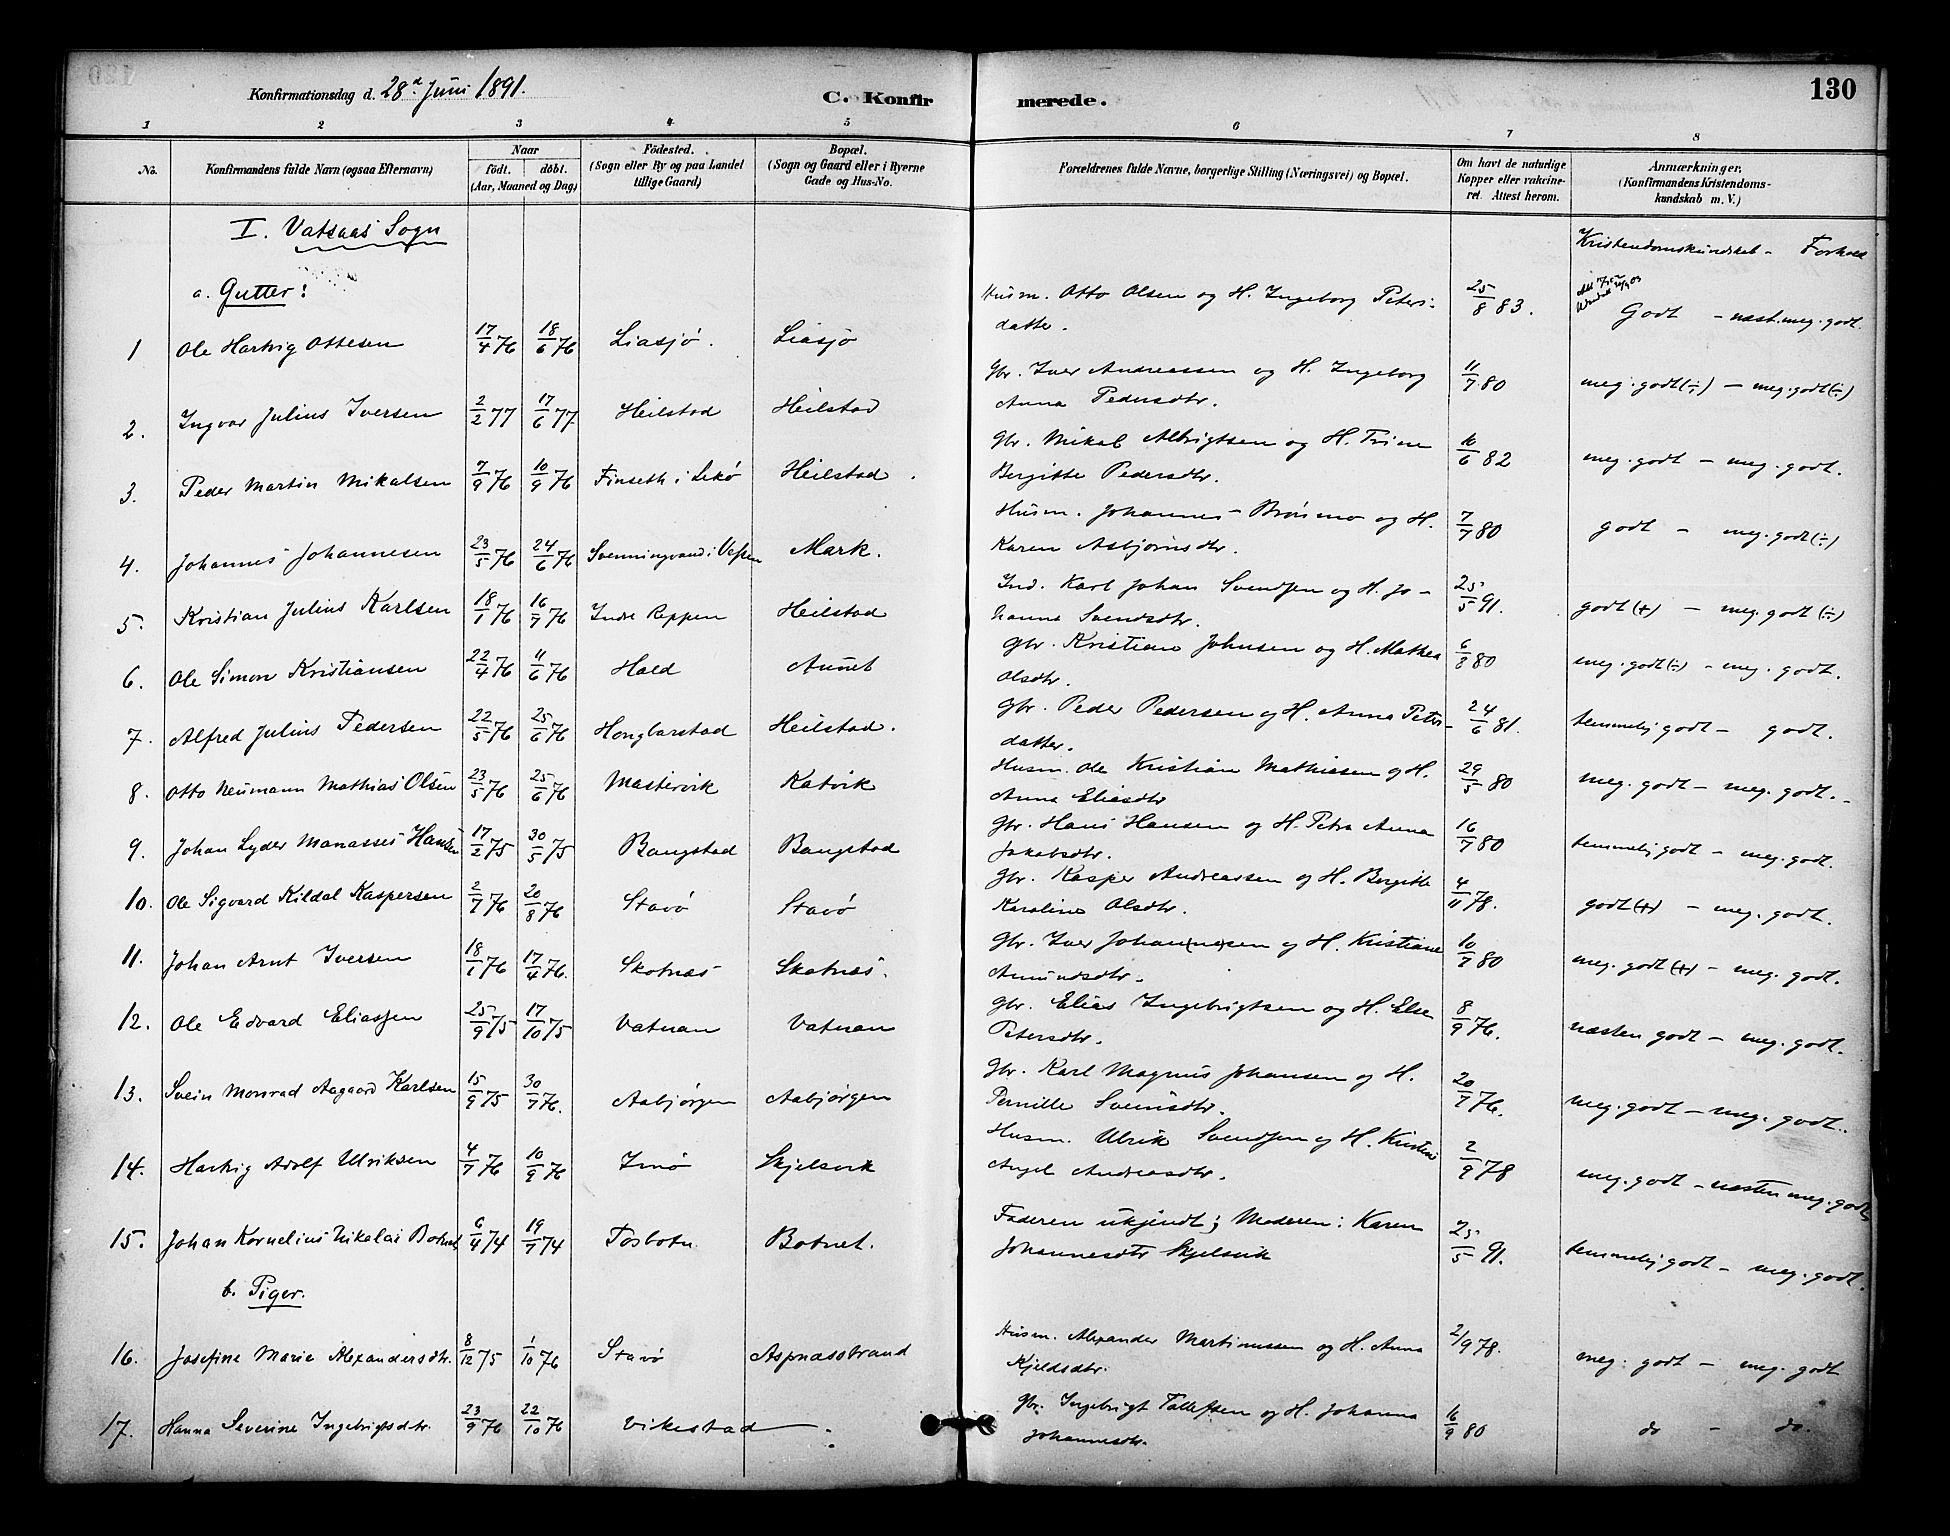 130
Konfirmationsdag d. 28d Juni 1891.
C. Konfirmerede.
1 2 3 4 5 6 7 8
No.
Konfirmandens fulde Navn (ogsaa Efternavn)
Naar
födt. döbt.
(Aar, Maaned og Dag)
Födested.
(Sogn eller By og paa Landet
tillige Gaard)
Bopæl.
(Sogn og Gaard eller i Byerne
Gade og Hus-No.
Forældrenes fulde Navne, borgerlige Stilling (Næringsvei) og Bopæl.
Om havt de naturlige
Kopper eller vakcine-
ret. Attest herom.
Anmærkninger.
(Konfirmandens Kristendoms-
kundskab m. V.)
I. Vatsaas Sogn
Kristendomskundskab - Forhold
a. Gutter:
1 Ole Hartvig Ottesen 17/4 76 18/6 76 Liasjø. Liasjø Husm. Otto Olsen og H. Ingeborg Peters- 25/8 83. Godt - næst. meg. godt.
datter.
2. Ingvar Julius Iversen 2/2 77 17/6 77 Heilstad Heilstad Gbr. Iver Andreassen og H. Ingeborg 11/7 80 meg. godt (÷) - meg. godt (÷)
Anna Pedersdtr.
3. Peder Martin Mikalsen 7/9 76 10/9 76 Finseth i Lekø Heilstad. Gbr. Mikal Albrigtsen og H. Trine 10/6 82 meg. godt - meg. godt.
Bergitte Pedersdtr.
4. Johannes Johannesen 23/5 76 24/6 76 Svenningvand i Vefsen Mark. Husm. Johannes Brönmo og H. 7/7 80 godt - meg. godt (÷)
Karen Asbjørnsdtr.
5. Kristian Julius Karlsen 18/1 76 16/7 76 Indre Reppen Heilstad Ind. Karl Johan Svendsen og H. Jo- 25/5 91. godt (+) - meg. godt (÷)
hanna Svendsdtr.
6. Ole Simon Kristiansen 22/4 76 11/6 76 Hald Aunet Gbr. Kristian Johnsen og H. Mathea 6/8 80 meg. godt (÷) - meg. godt.
Olsdtr.
7. Alfred Julius Pedersen 22/5 76 25/6 76 Honglarstad Heilstad. Gbr. Peder Pedersen og H. Anna Peters- 24/6 81. temmelig godt - godt.
datter.
8. Otto Neumann Mathias Olsen 23/5 76 25/6 76 Mastervik Katvik Husm. Ole Kristian Mathiesen og H. 29/5 80 meg. godt - meg. godt.
Anna Eliasdtr
9. Johan Lyder Manasses Hansen 17/2 75 30/5 75 Bangstad Bangstad Gbr. Hans Hansen og H. Petra Anna 16/7 80 temmelig godt - meg. godt.
Jakobsdtr.
10. Ole Sigvard Kildal Kaspersen 2/7 76 20/8 76 Stavø Stavø Gbr. Kasper Andreassen og H. Bergitte 4/11 78. godt (+) - meg. godt.
Karoline Olsdtr.
11. Johan Arnt Iversen 18/1 76 17/4 76. Skotnæs Skotnæs. Gbr. Iver Johan(ne)sen og H. Kristiane 10/7 80 meg. godt (+) - meg. godt.
Amundsdtr.
12. Ole Edvard Eliassen 25/9 75 17/10 75 Vatnan Vatnan Gbr. Elias Ingebrigtsen og H. Else 8/9 76. næsten godt - meg. godt.
Petersdtr.
13. Svein Monrad Aagaard Karlsen 15/9 75 30/7 76. Aabjørgen Aabjørgen Gbr. Karl Magnus Johansen og H. 20/7 76. meg. godt - meg. godt.
Pernille Svensdtr.
14. Hartvig Adolf Ulriksen 4/7 76 10/9 76 Imø Skjelsvik Husm. Ulrik Svendsen og H. Kirstine 2/9 78 meg. godt - næsten meg. godt
Angel Andreasdtr.
15. Johan Kornelius Nikolai Botnet 6/4 74 19/7 74 Tosbotn Botnet. Faderen ukjendt; Moderen: Karen 25/5 91. temmelig godt - meg. godt.
Johannesdtr Skjelsvik
b. Piger.
16. Josefine Marie Alexandersdtr. 8/12 75 1/10 76 Stavø Aspnæsstrand Husm. Alexander Martinussen og H. Anna 2/9 78. meg. godt - meg. godt
Kjeldsdtr.
17. Hanna Severine Ingebrigtsdtr. 23/9 76 22/10 76 Vikestad Gbr. Ingebrigt Tollefsen og H. Johanna 16/9 80 do - do.
Johannesdtr.